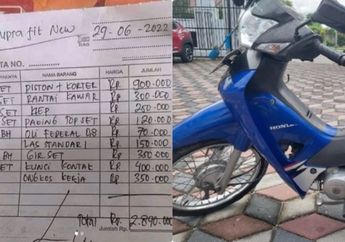 Supra fit New 29-06-2022
TA NO.
NAMA BARANG HARGA JUMLAH
SET PISTON + KORTER Rp 900.000
SET RANTAI KAMAR Rp 300.000
SET KLEP Rp 250.000
SET PAGING TOP SET Rp 120.000
BH OLI FEDERAL 0,8 Rp 70.000
LAS STANDARI Rp 150.000
BH GIR SET Rp 350.000
SET KUNCI KONTAK Rp 400.000
ONGKOS KERJA Rp 350.000
TOTAL Rp 2.890.000
Jumlah Rp.
HONDA